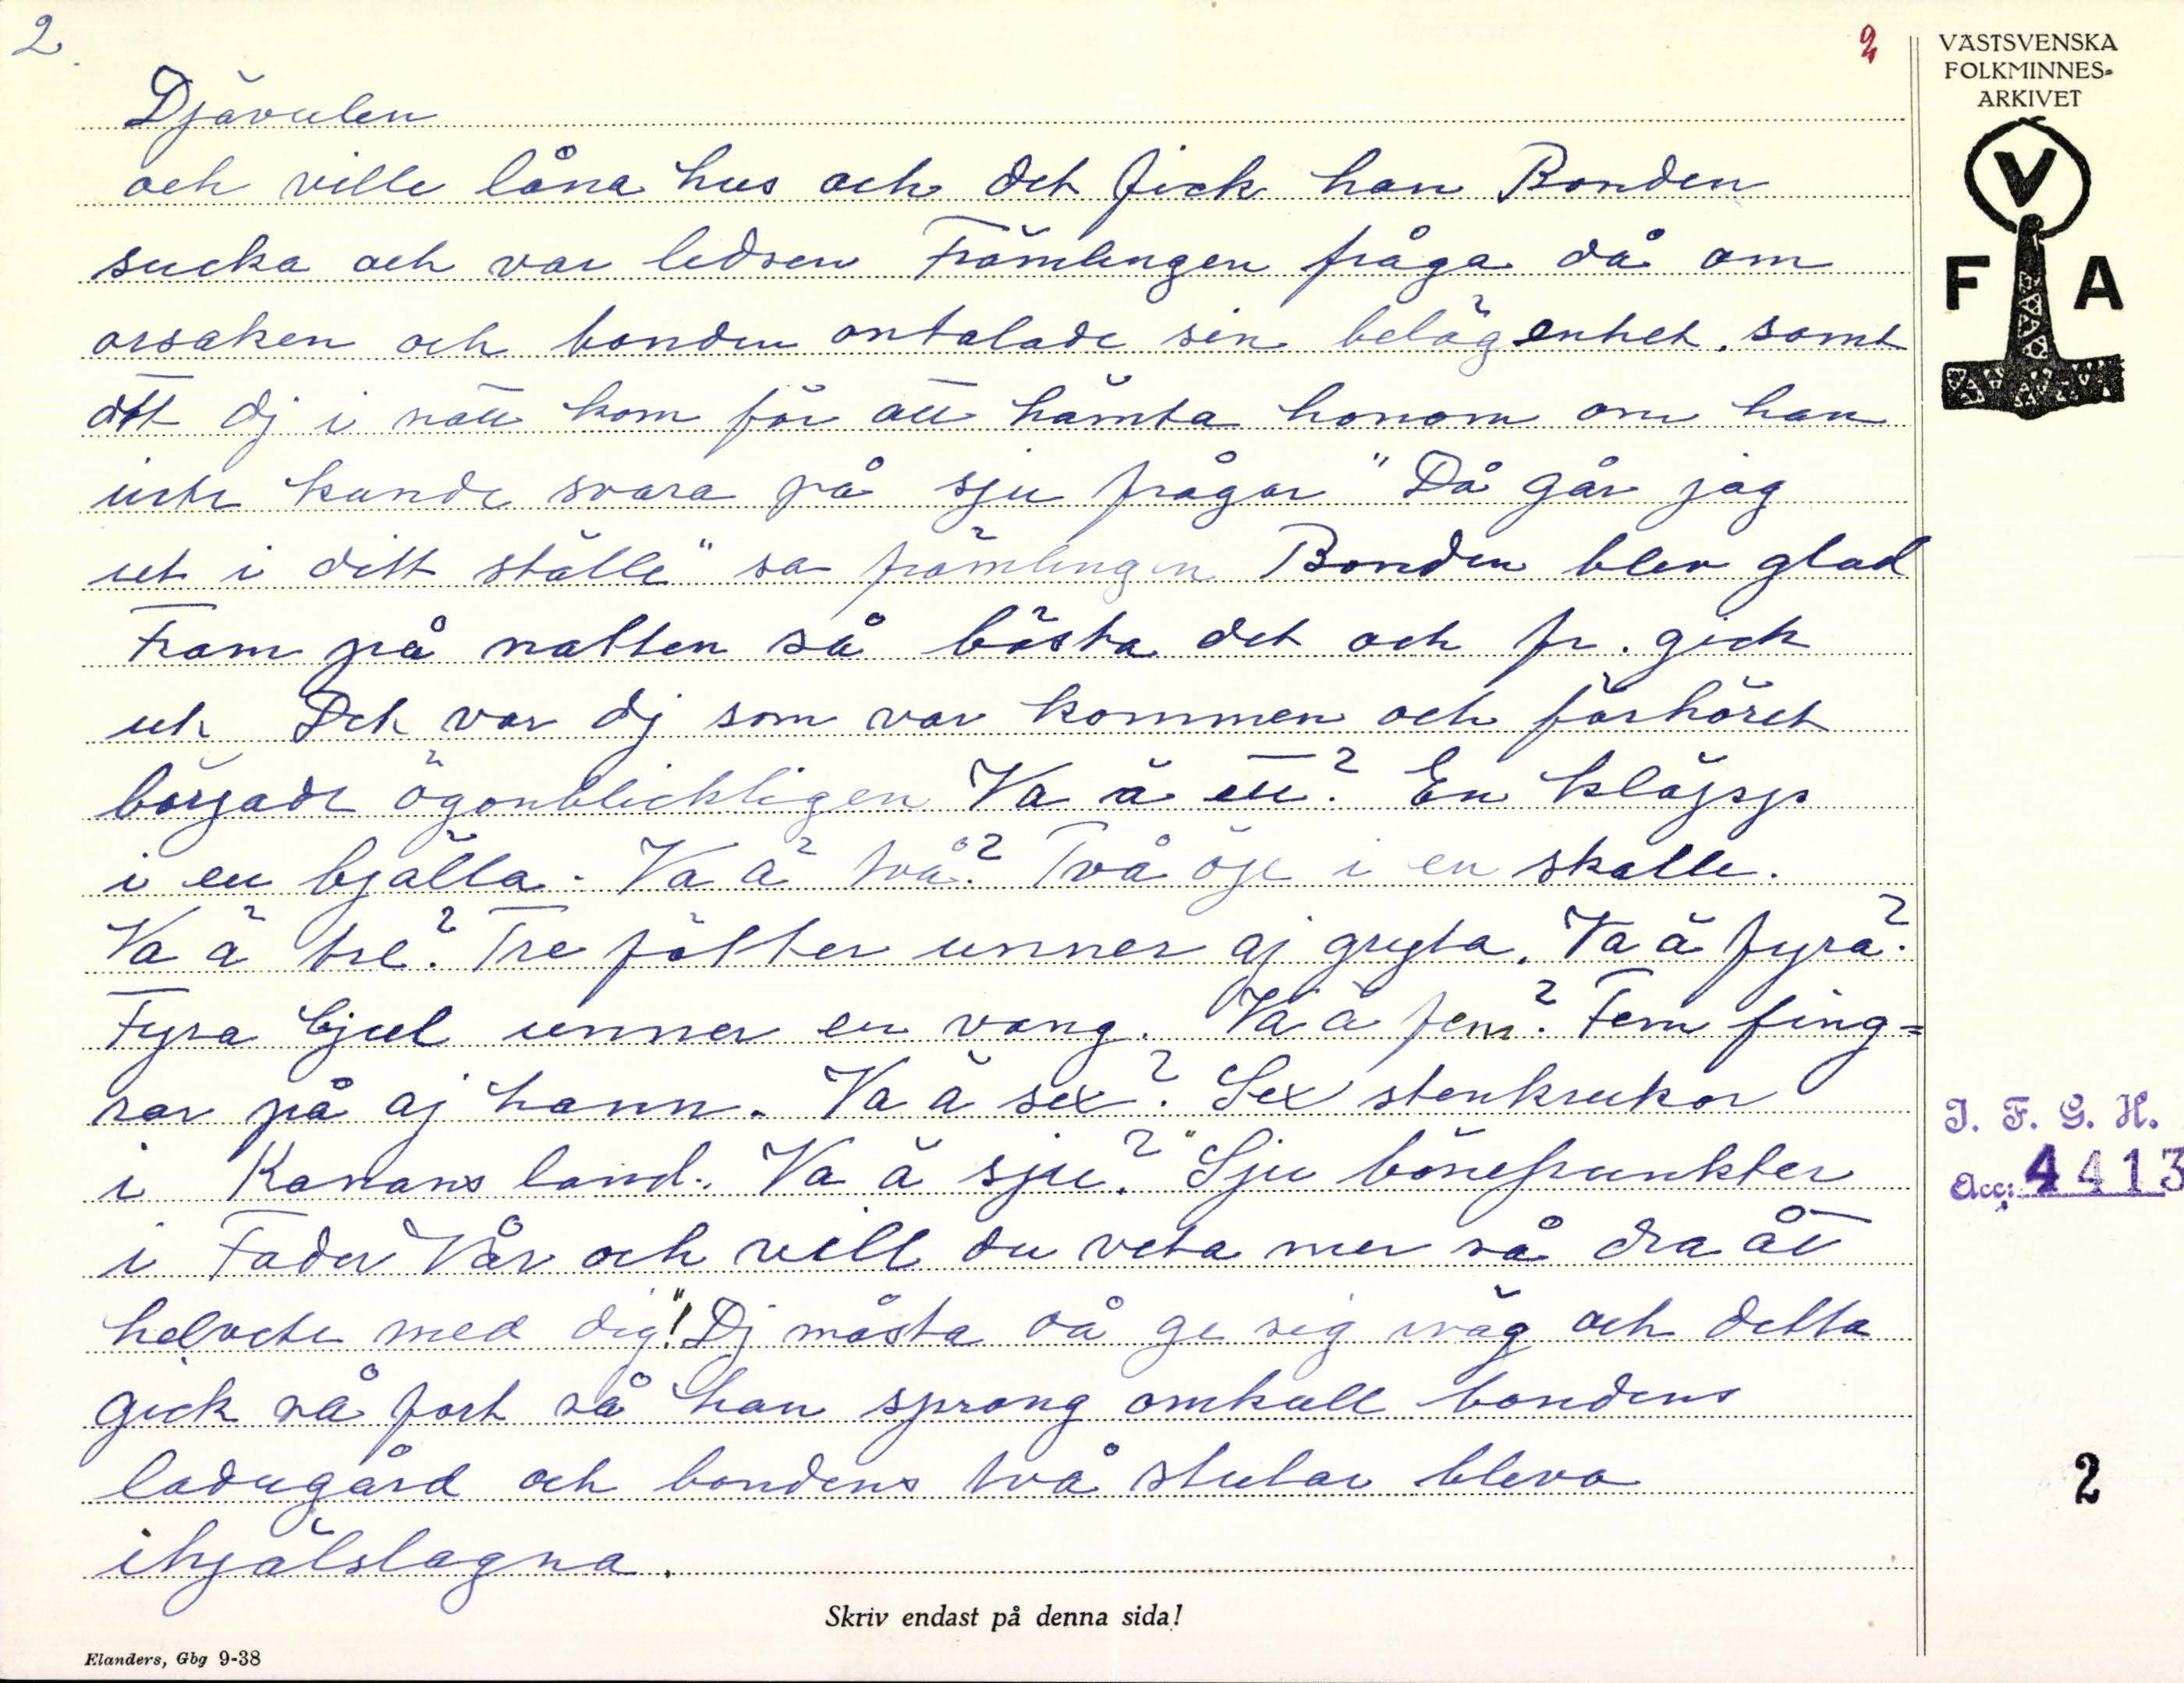 2.
2
VÄSTSVENSKA
FOLKMINNES-
ARKIVET
V
F A
Djävulen
och ville låna hus och det fick han Bonden
sucka och var ledsen Främlingen fråga då om
orsaken och bonden omtalade sin belägenhet. samt
att dj i natt kom för att hämta honom om han
inte kunde svara på sju frågor "Då går jag
ut i ditt ställe" sa främlingen Bonden blev glad
Fram på natten så bösta det och fr. gick
ut Det var dj som var kommen och förhöret
började ögonblickligen Va ä ett? En kläpp
i en bjälla. Va ä två? Två öje i en skalle.
Va ä tre? Tre fötter unner aj gryta. Va ä fyra?
Fyra hjul unner en vang. Va ä fem? Fem fing=
rar på aj hann. Va ä sex? Sex stenkrukor
i Kanans land. Va ä sju? "Sju bönepunkter
i Fader Vår och vill du veta mer så dra åt
helvete med dig"! Dj måsta då ge sig iväg och detta
gick så fort så han sprang omkull bondens
ladugård och bondens två stutar bleva
ihjälslagna.
I. F. G. H.
Acc: 4413
2
Skriv endast på denna sida!
Elanders, Gbg 9-38